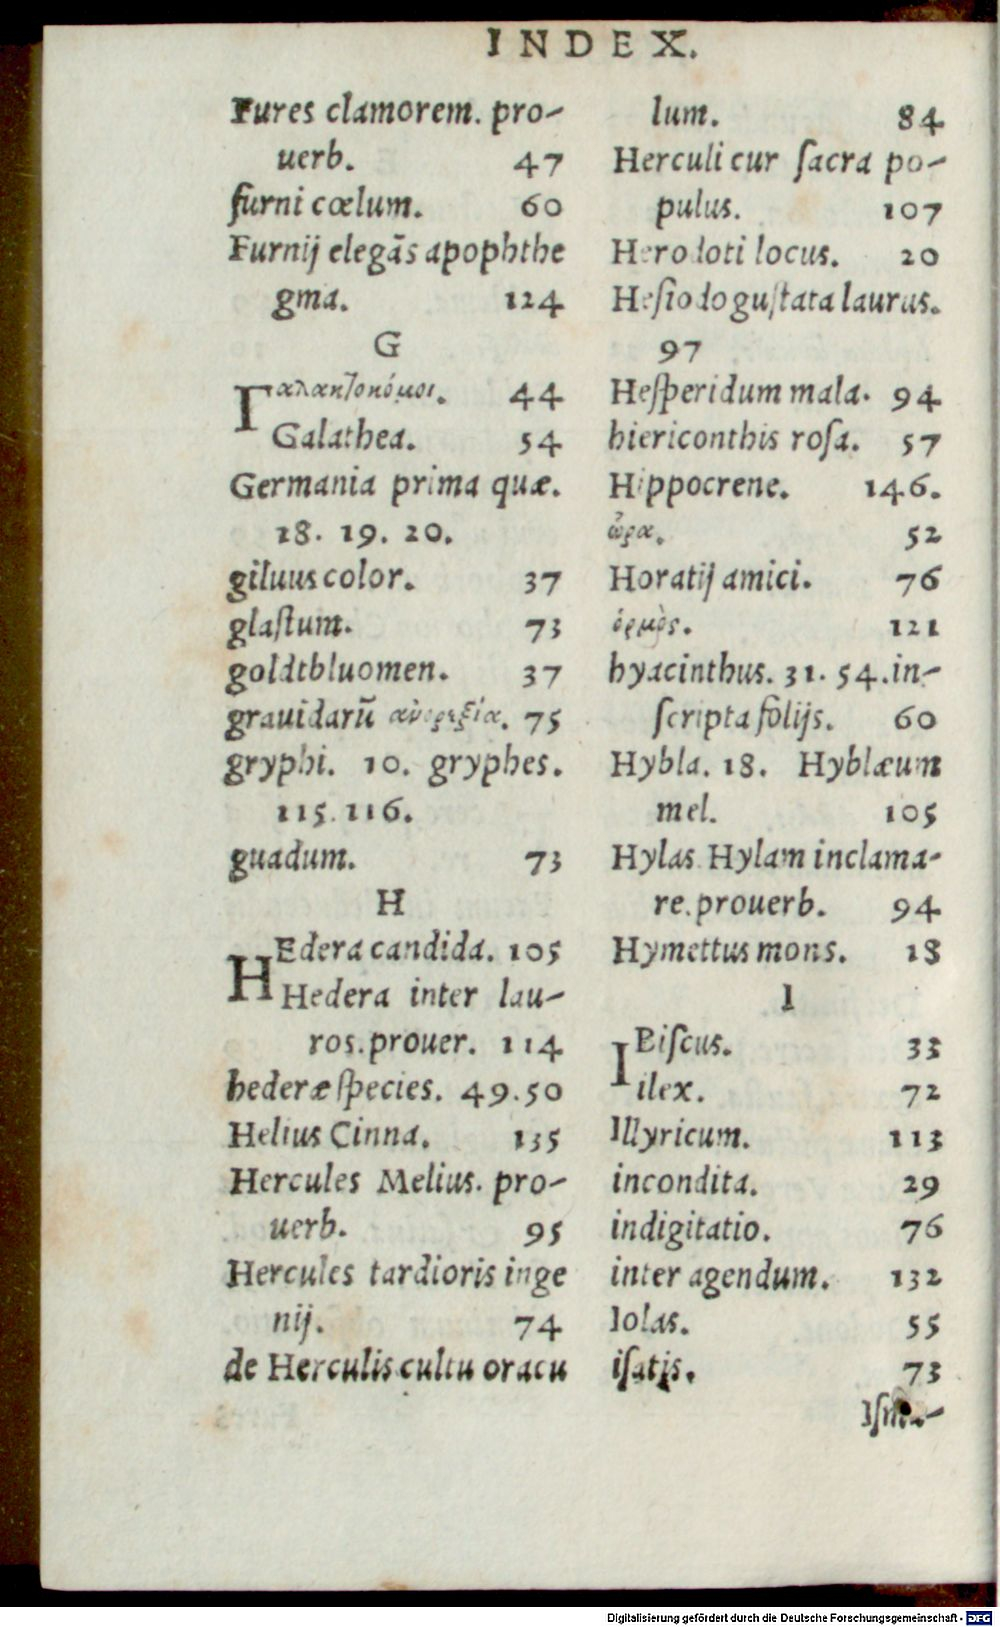 INDEX.
Fures clamorem. pro-
uerb. 47
furni cœlum. 60
Furnij elegãs apophthe
gma. 124
G
Γαλακτονόμοι. 44
Galathea. 54
Germania prima quæ.
18. 19. 20.
giluus color. 37
glaſtum. 73
goldtbluomen. 37
grauidarũ ἀνορεξία. 75
gryphi. 10. gryphes.
115. 116.
guadum. 73
H
HEdera candida. 105
Hedera inter lau-
ros. prouer. 114
hederæ ſpecies. 49. 50
Helius Cinna. 135
Hercules Melius. pro-
uerb. 95
Hercules tardioris inge
nij. 74
de Herculis cultu oracu
lum. 84
Herculi cur ſacra po-
pulus. 107
Herodoti locus. 20
Heſiodo guſtata laurus.
97
Heſperidum mala. 94
hiericonthis roſa. 57
Hippocrene. 146.
ὥρα. 52
Horatij amici. 76
ὁρμὸς. 121
hyacinthus. 31. 54. in-
ſcripta folijs. 60
Hybla. 18. Hyblæum
mel. 105
Hylas Hylam inclama-
re. prouerb. 94
Hymettus mons. 18
I
IBiſcus. 33
ilex. 72
Illyricum. 113
incondita. 29
indigitatio. 76
inter agendum. 132
Iolas. 55
iſatis. 73
Digitalisierung gefördert durch die Deutsche Forschungsgemeinschaft - DFG